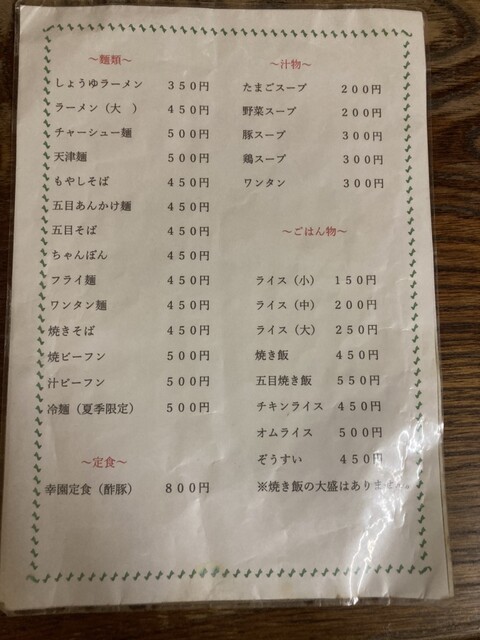 ～麺類～
しょうゆラーメン 350円
ラーメン（大　） 450円
チャーシュー麺 500円
天津麺 500円
もやしそば 450円
五目あんかけ麺 450円
五目そば 450円
ちゃんぽん 450円
フライ麺 450円
ワンタン麺 450円
焼きそば 450円
焼ビーフン 500円
汁ビーフン 500円
冷麺（夏季限定） 500円
～定食～
幸園定食（酢豚） 800円
～汁物～
たまごスープ 200円
野菜スープ 200円
豚スープ 300円
鶏スープ 300円
ワンタン 300円
～ごはん物～
ライス（小） 150円
ライス（中） 200円
ライス（大） 250円
焼き飯 450円
五目焼き飯 550円
チキンライス 450円
オムライス 500円
ぞうすい 450円
※焼き飯の大盛はありません。